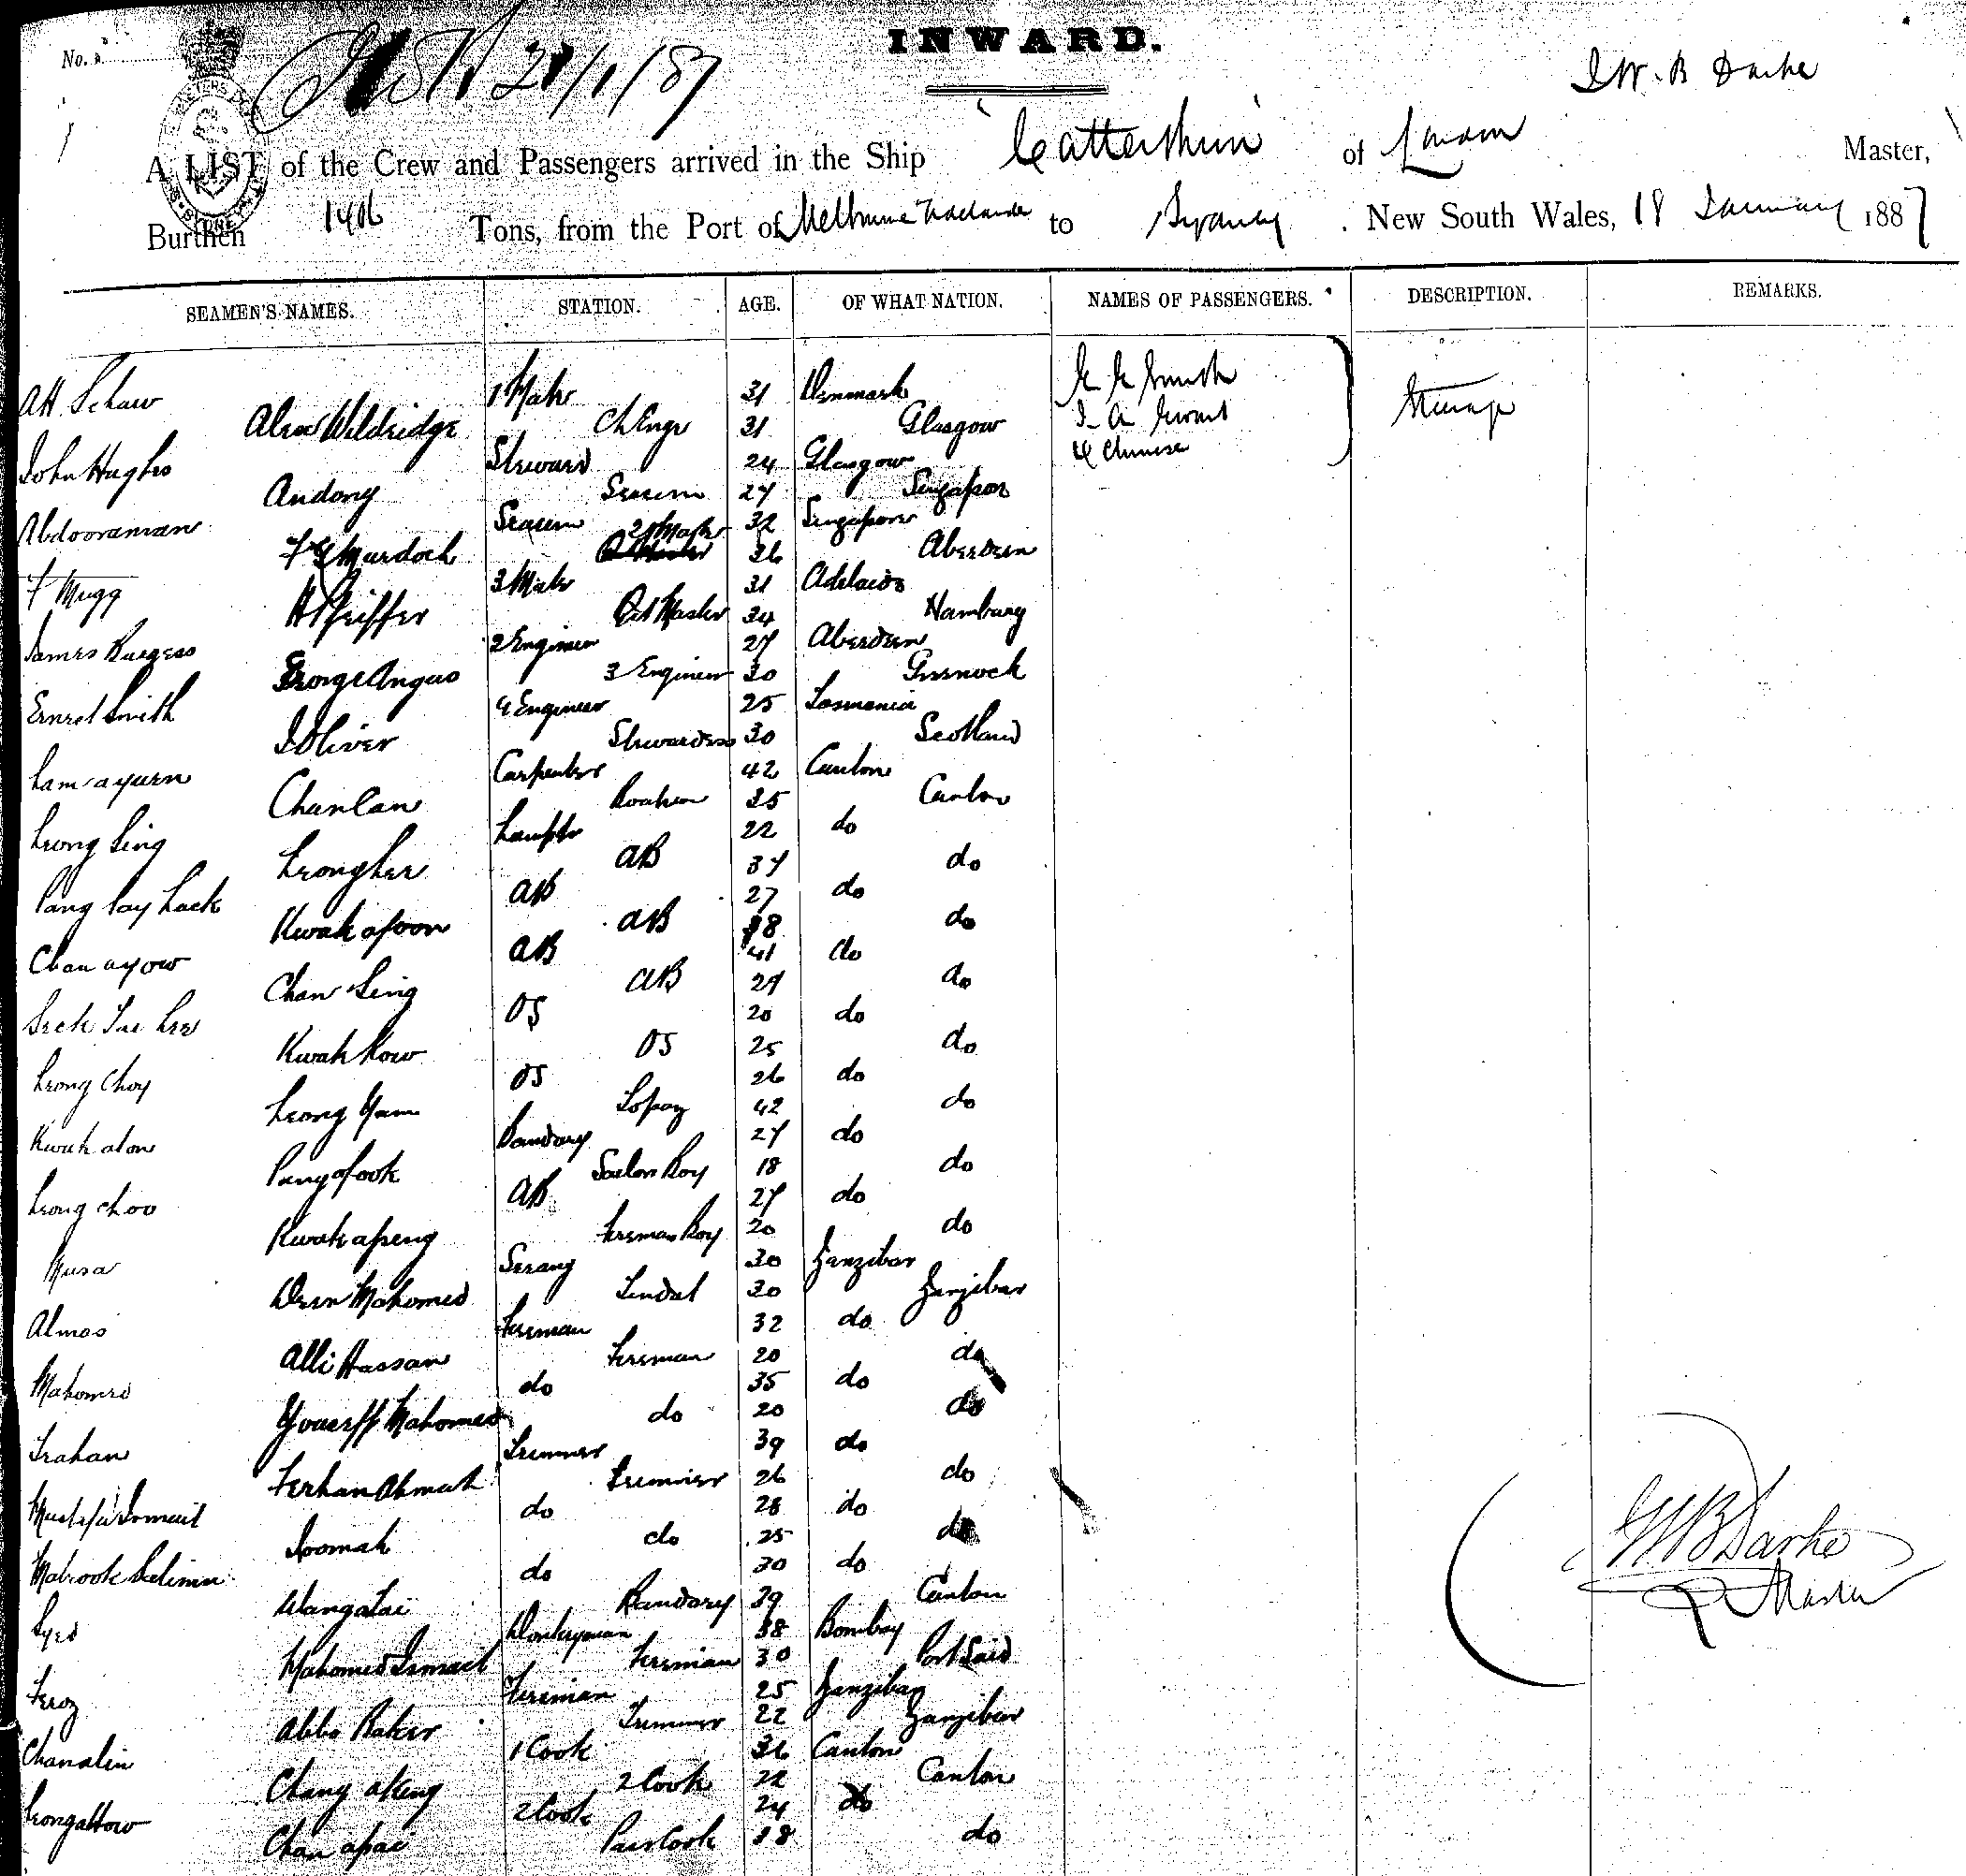 INWARD.
No.
28/1/87
J W. B Darke
A LIST of the Crew and Passengers arrived in the Ship Catterthun of London Master,
Burthen 1406 Tons, from the Port of Melbourne Adelaide to Sydney. New South Wales, 18 January 1887
SEAMEN'S NAMES. STATION. AGE. OF WHAT NATION. NAMES OF PASSENGERS. DESCRIPTION. REMARKS.
AH Schaw 1 Mate 31 Denmark
Alex Weldridge Ch Engr 31 Glasgow Steerage
4 Chinese
John Hughes Steward 24 Glasgow
Andong Seacun 27 Singapore
Abdooraman Seacun 32 Singapore
Murdoch 2d Mate 36 Aberdeen
F Mugg 3 Mate 31 Adelaide
H Pfeiffer Qd Master 34 Hamburg
James Burgess 2 Engineer 27 Aberdeen
George Angus 3 Engineer 30 Greenock
Ernest Smith 4 Engineer 25 Tasmania
J Oliver Stewardess 30 Scotland
Lam ayuen Carpenter 42 Canton
Chanlan 35 Canton
Leong Sing Lamptr 22 do
Leongher AB 37 do
Pang Lay Hack AB 27 do
Kwok afoon AB 38 do
Chan ayow AB 41 do
Chan Sing AB 27 do
OS 20 do
Kwok Kow OS 25 do
Leong Choy OS 26 do
Leong Yam Topaz 42 do
Kwok alon Bandary 27 do
Pang afook Sailors Boy 18 do
Leong choo AB 27 do
Kwok apeng Fireman Boy 20 do
Musa Serang 30 Zanzibar
Deen Mahomed Tindal 30 Zanzibar
Almas Fireman 32 do
Alli Hassan Fireman 20 do
Mahomed do 35 do
Youseff Mahomed do 20 do
Frahan Trimmer 39 do
Ferhan Ahmah Trimmer 26 do
Mustafa Ismail do 28 do
Joomah do 25 do
Mabrook Selimin do 30 do
Wangatai Bandary 39 Canton
Syed Donkeyman 38 Bombay
Mahomed Ismael Fireman 30 Port Said
Feroz Fireman 25 Zanzibar
Abbo Baker Trimmer 22 Zanzibar
Chanalin 1 Cook 36 Canton
Chang akeng 2 Cook 22 Canton
Leongahow 2 Cook 24 do
Chan apai Pass Cook 38 do
JWB Darke
Master